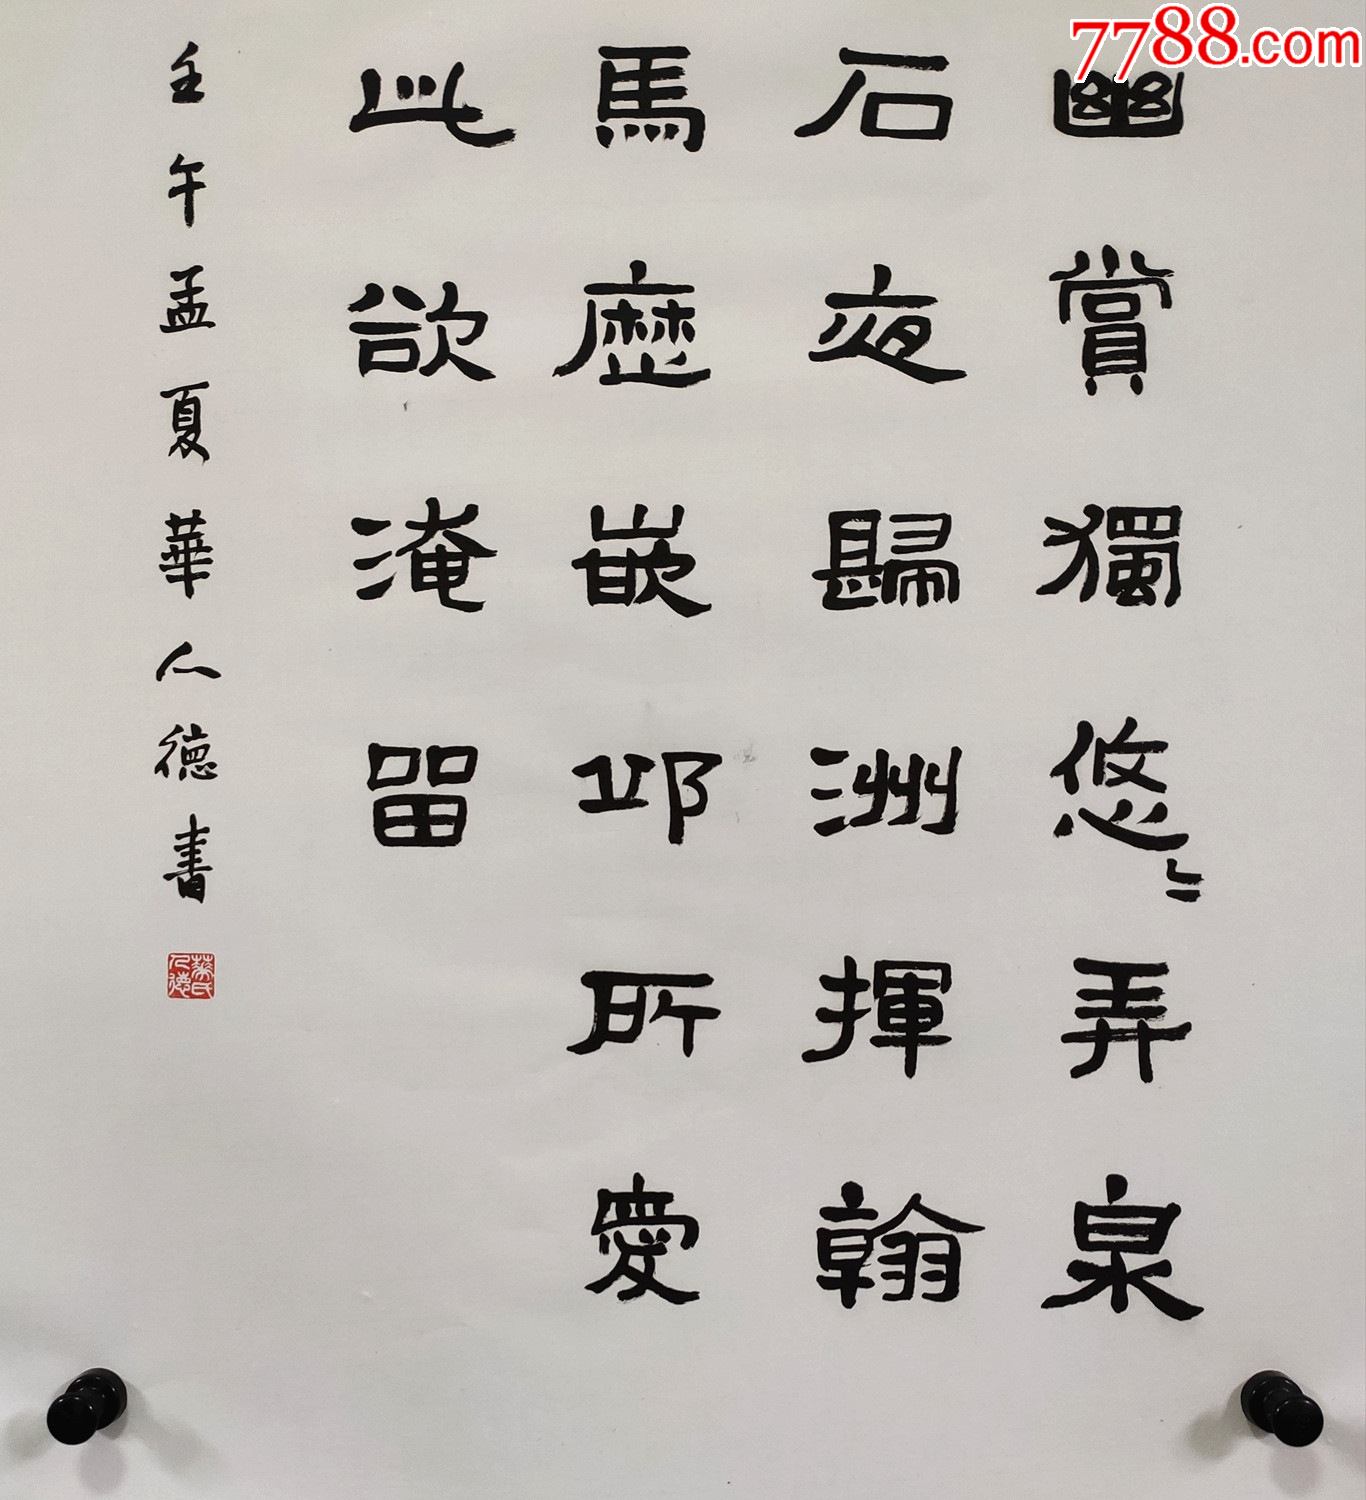 7788.com
幽賞獨悠〻弄泉
石夜歸洲揮翰
馬歷嵌邱所愛
此欲淹留
壬午孟夏華人德書
華氏人德